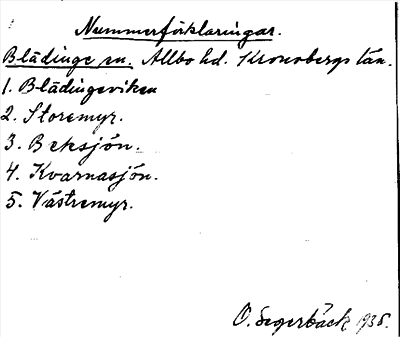 Nummerförklaringar.
Blädinge sn. Allbo hd. Kronobergs län.
1. Blädingeviken
2. Storemyr.
3. Beksjön.
4. Kvarnasjön.
5. Västremyr.
O. Segerbäck 1935.